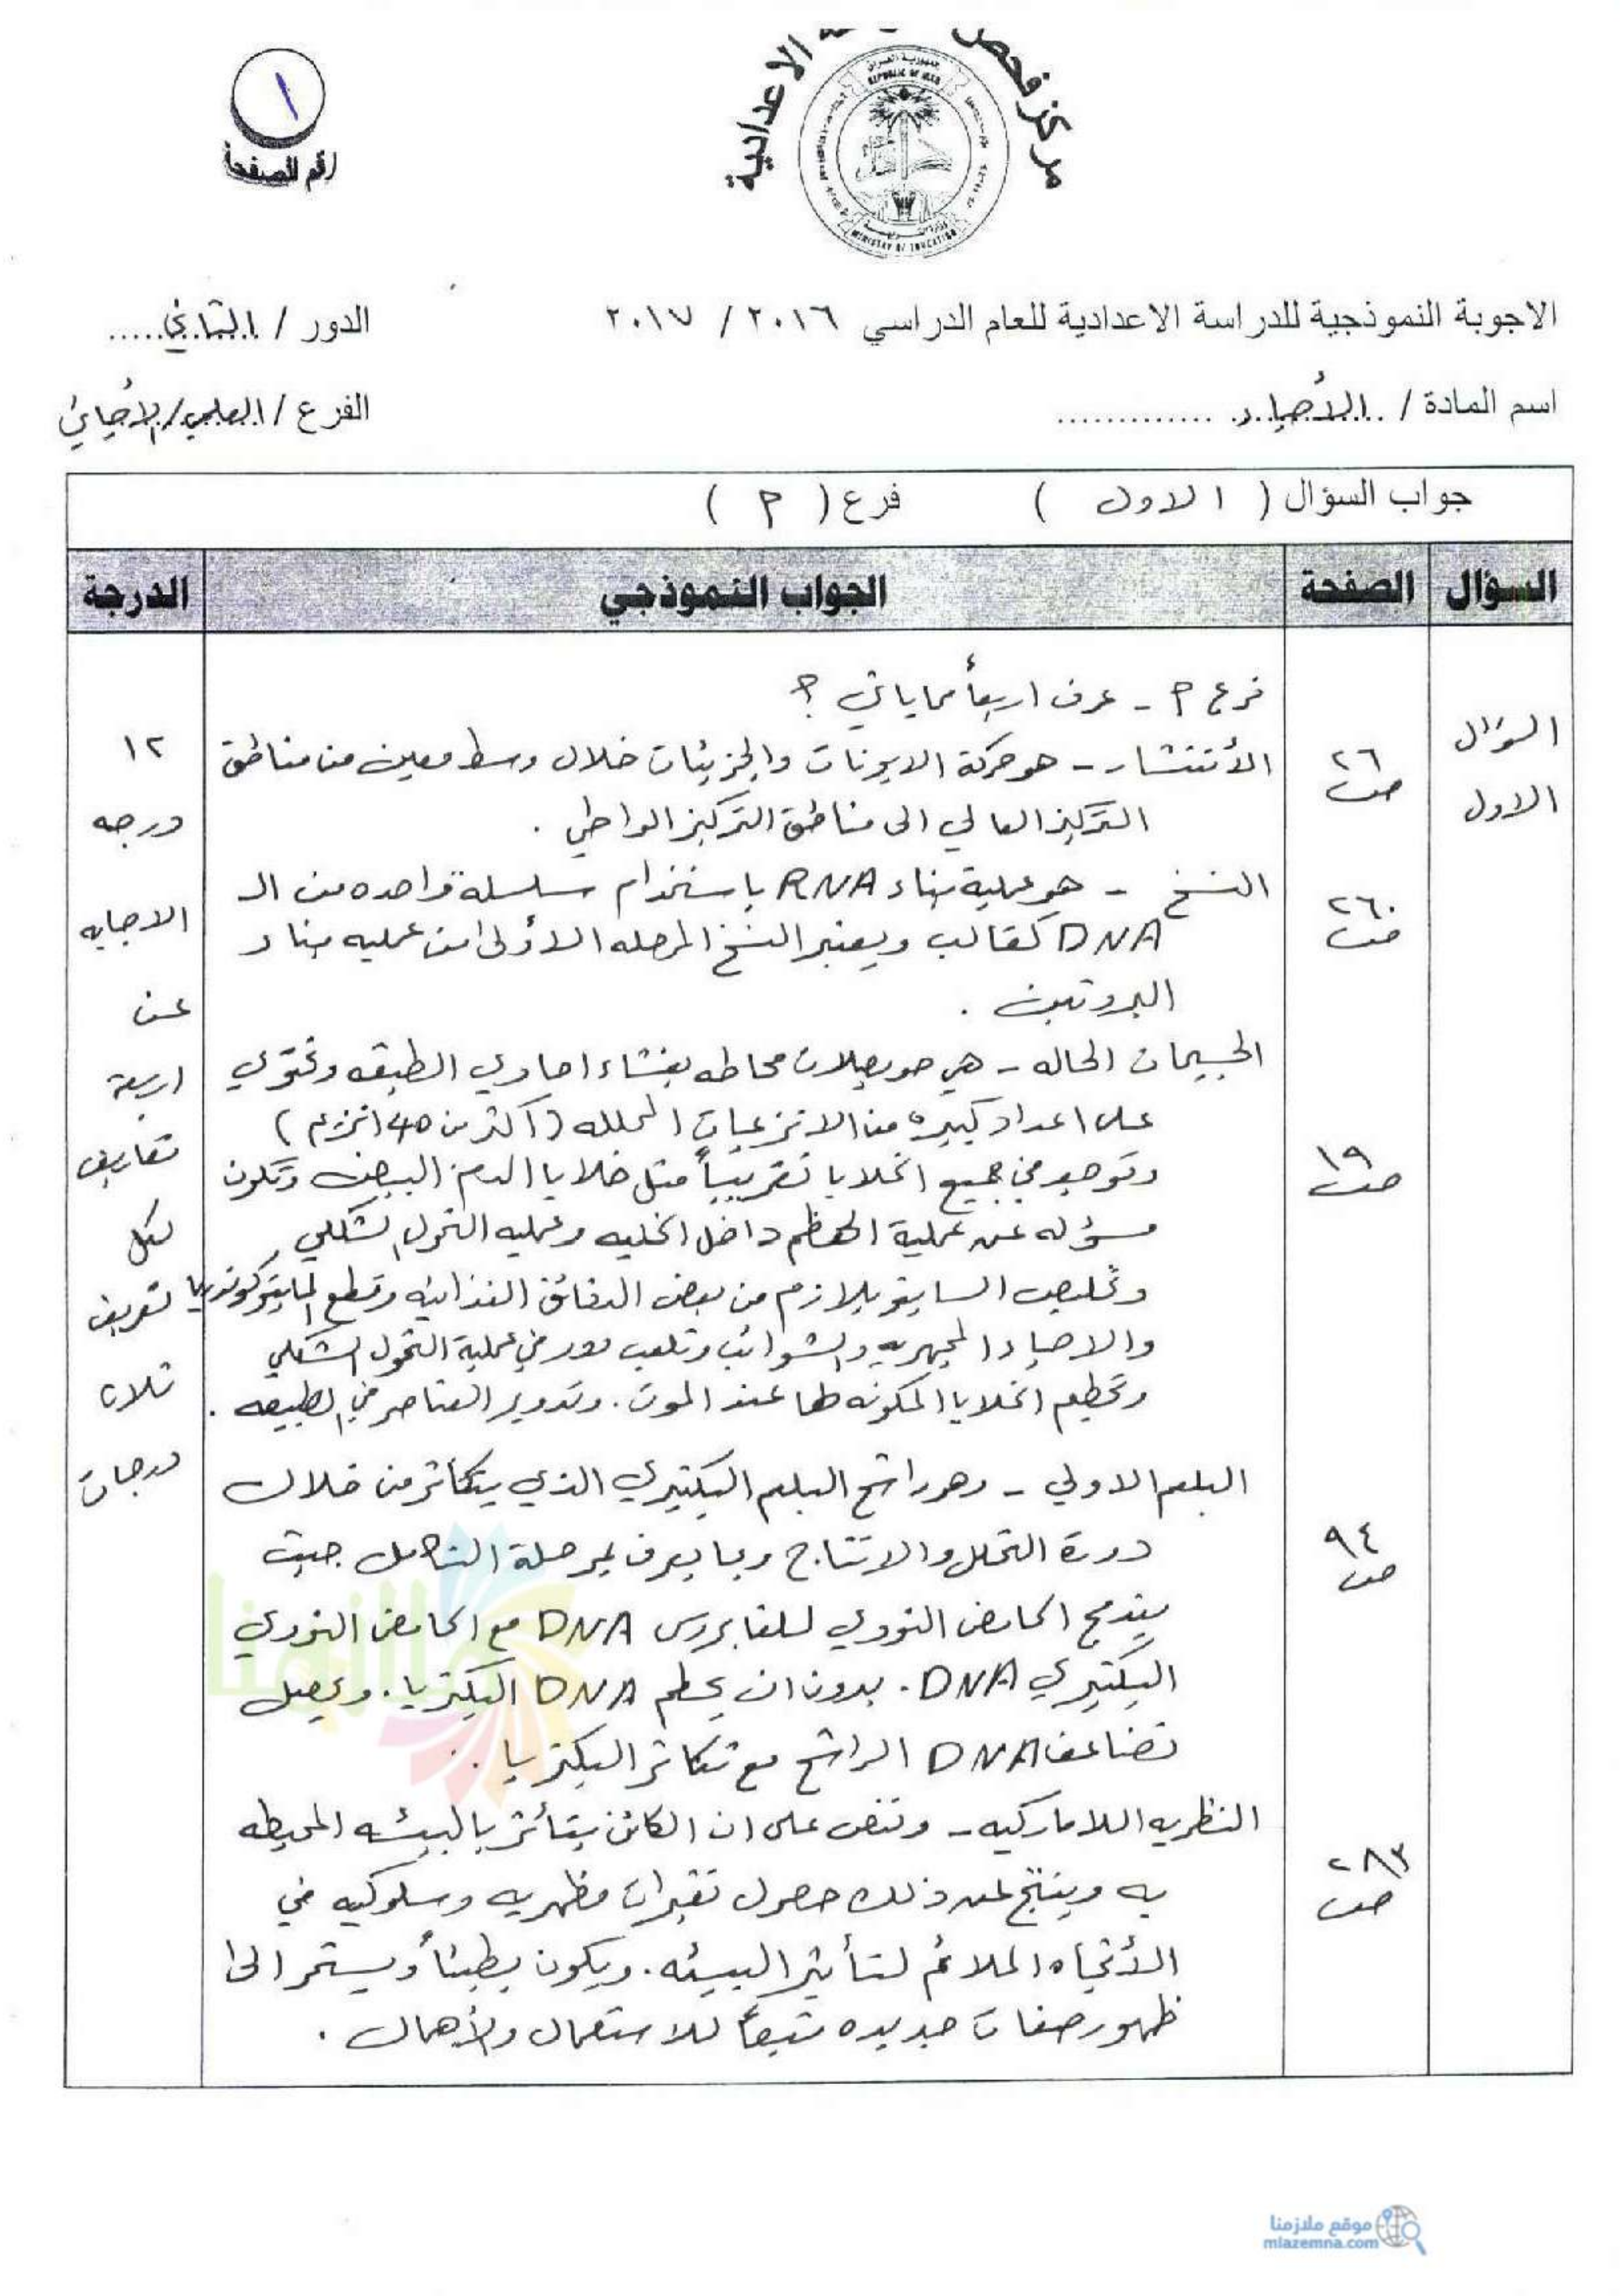 مركز فحص الاعدادية
جمهورية العراق
REPUBLIC OF IRAQ
MINISTRY OF EDUCATION
١
رقم الصفحة
الاجوبة النموذجية للدراسة الاعدادية للعام الدراسي ٢٠١٦ / ٢٠١٧
الدور / الثاني.....
اسم المادة / الأحياء .............
الفرع / العلمي/الأحيائي
جواب السؤال ( الاول ) فرع ( م )
السؤال الصفحة الجواب النموذجي الدرجة
السؤال
الاول
فرع م - عرف اربعاً مما يأتي ؟
ص ٢٦
الأنتشار - هو حركة الايونات والجزيئات خلال وسط معين من مناطق
التركيز العالي الى مناطق التركيز الواطي .
ص ٢٦٠
النسخ - هو عملية بناء RNA باستخدام سلسلة واحده من الـ
DNA كقالب ويعتبر النسخ المرحله الأولى من عمليه بناء
البروتين .
الجسيمات الحاله - هي حويصلات محاطه بغشاء احادي الطبقه وتحتوي
على اعداد كبيره من الانزيمات المحلله (اكثر من 40 انزيم)
ص ١٩
وتوجد في جميع الخلايا تقريباً مثل خلايا الدم البيض وتكون
مسؤوله عن عملية الهظم داخل الخليه وعمليه التحول الشكلي
وتخليص السايتوبلازم من بعض الدقائق الغذائيه وقطع المايتوكوندريا
والاحياء المجهريه والشوائب وتلعب دور في عملية التحول الشكلي
وتحطيم الخلايا المكونه لها عند الموت . وتدوير العناصر في الطبيعه .
ص ٩٤
البلعم الاولي - وهو راشح البلعم البكتيري الذي يتكاثر من خلال
دورة التحلل والانتاج وبما يعرف بمرحلة التكامل حيث
يندمج الحامض النووي للفايروس DNA مع الحامض النووي
البكتيري DNA . بدون ان يحطم DNA البكتريا . ويحصل
تضاعف DNA الراشح مع تكاثر البكتريا .
ص ٢٨٣
النظريه اللاماركيه - وتنص على ان الكائن يتأثر بالبيئه المحيطه
به وينتج عن ذلك حصول تغيرات مظهريه وسلوكيه في
الأتجاه الملائم لتأثير البيئه . ويكون بطيئاً ويستمر الى
ظهور صفات جديده تبعاً للاستعمال والأهمال .
١٢
درجه
الاجابه
عن
اربعة
تعاريف
لكل
تعريف
ثلاث
درجات
ملازمنا
موقع ملازمنا
mlazemna.com